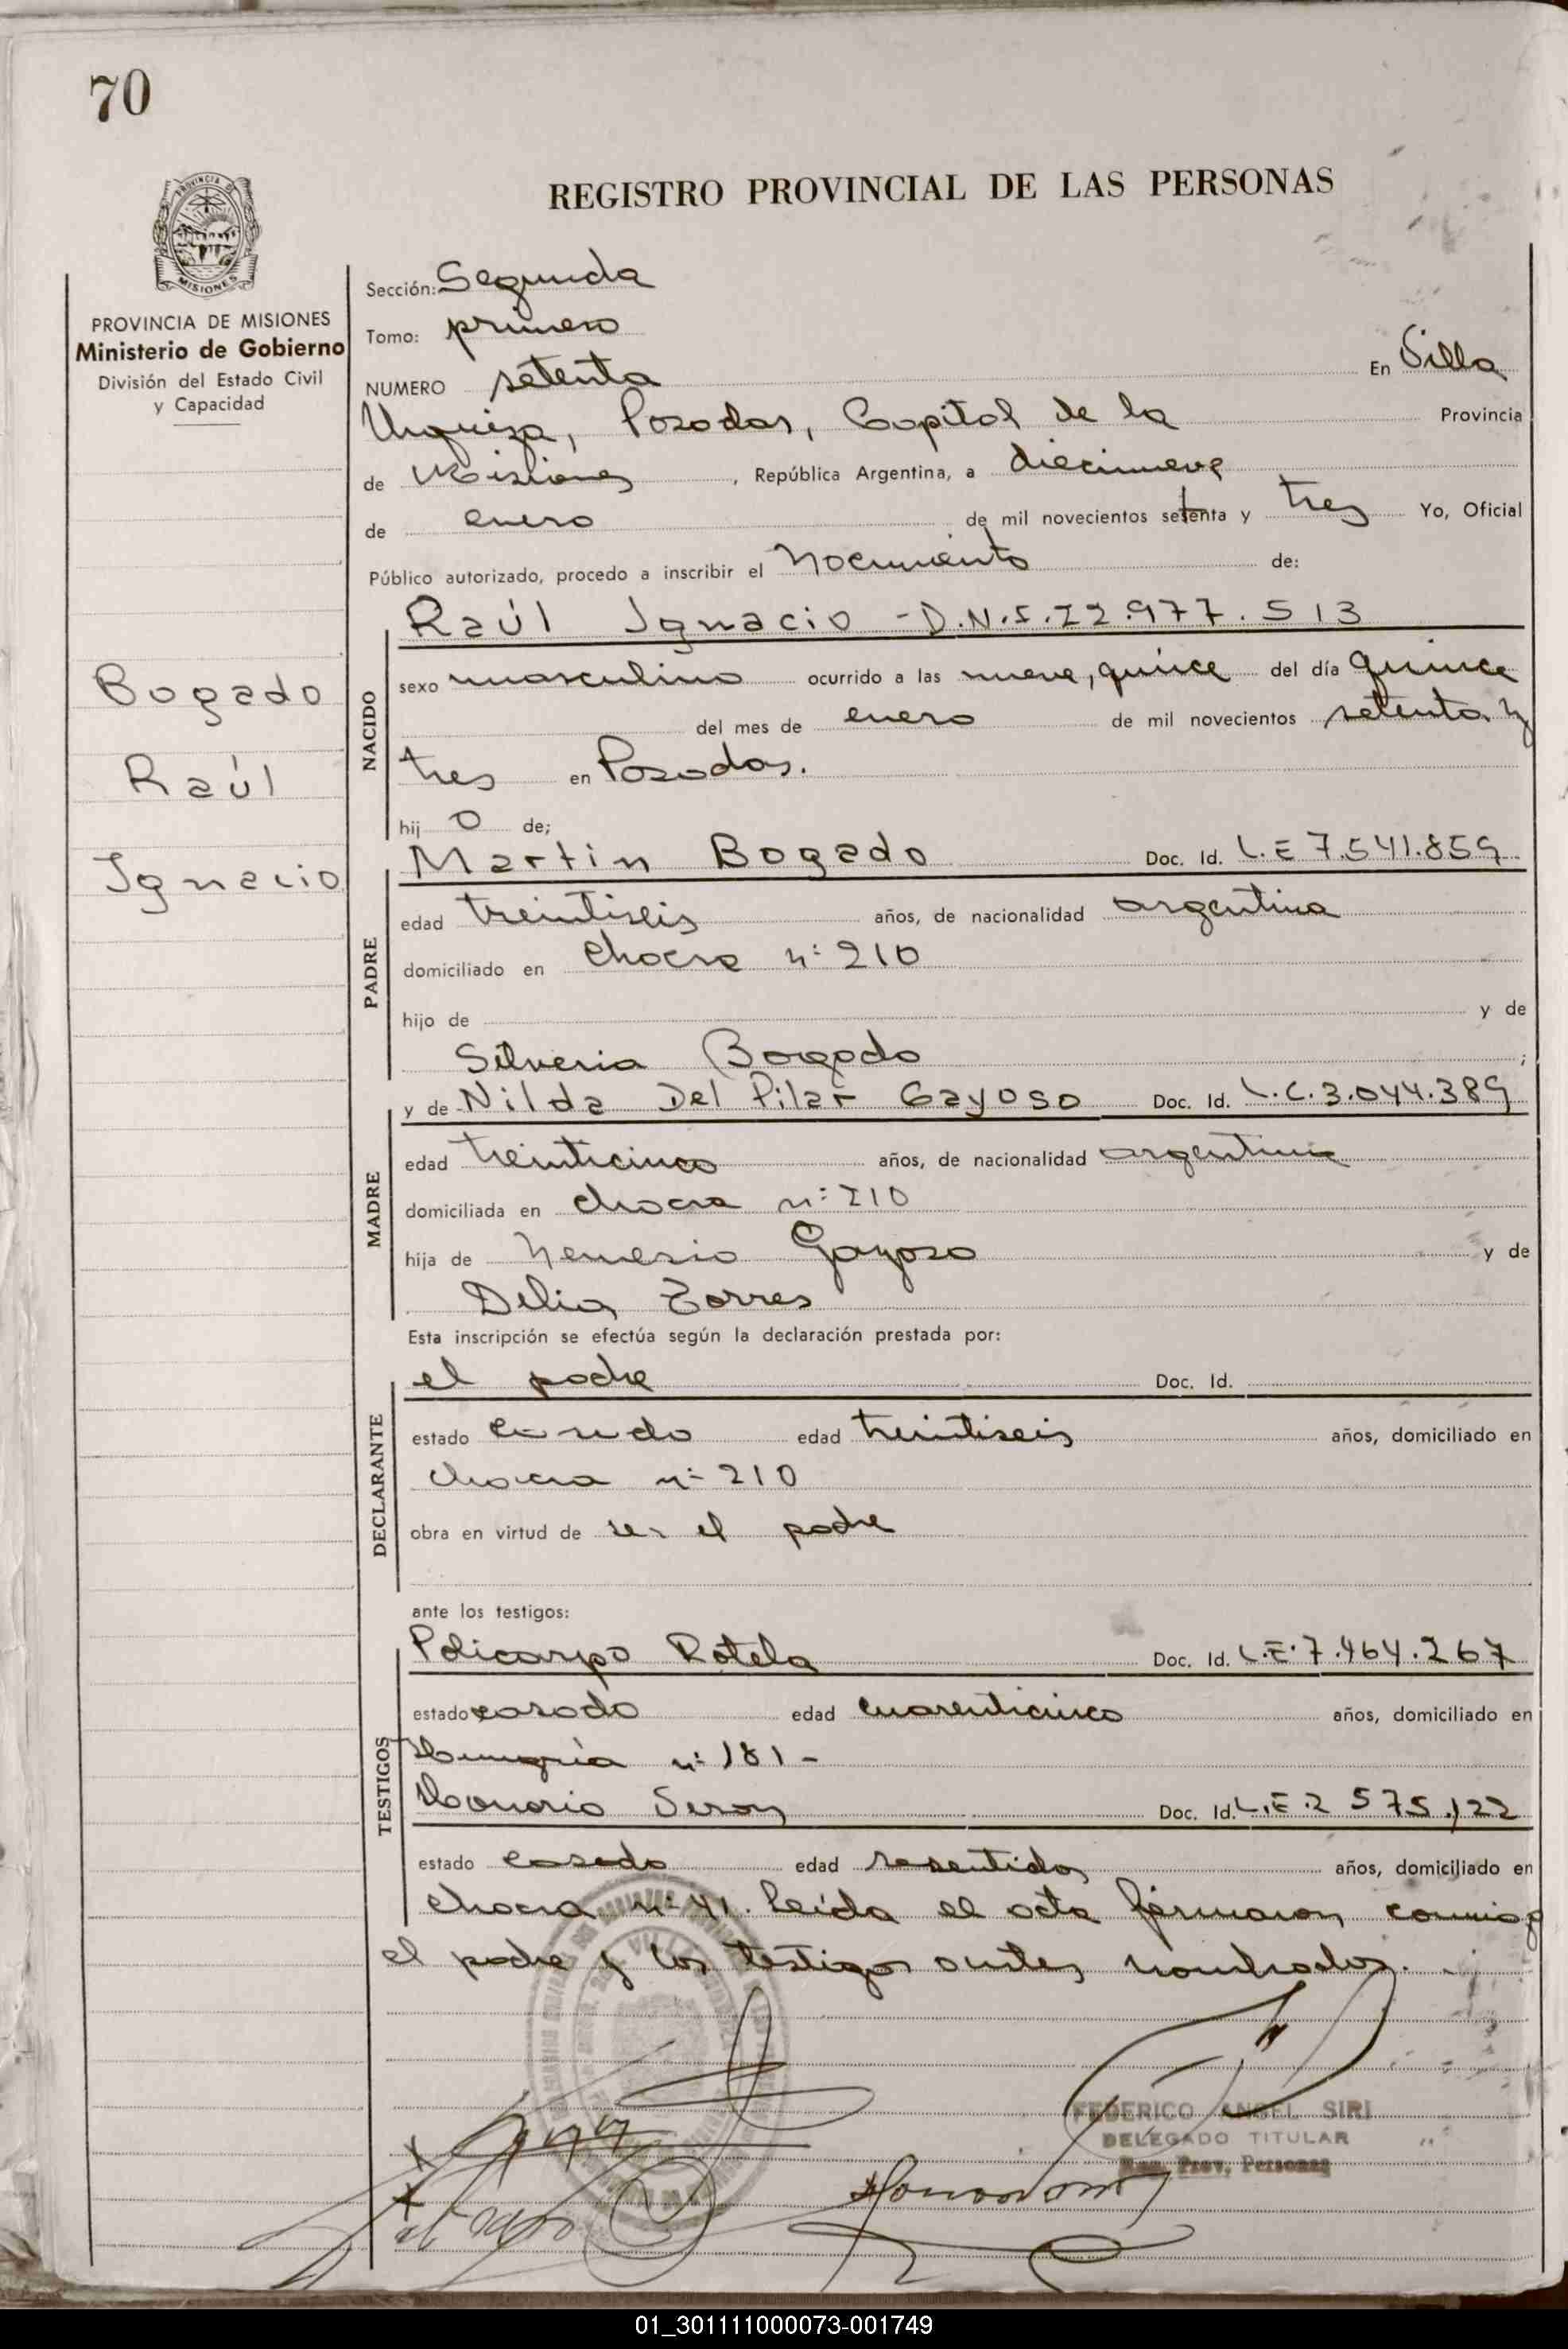 70
REGISTRO PROVINCIAL DE LAS PERSONAS
PROVINCIA DE
MISIONES
PROVINCIA DE MISIONES
Ministerio de Gobierno
División del Estado Civil
y Capacidad
Bogado
Raúl
Ignacio
Sección: Segunda
Tomo: primero
NUMERO setenta En Villa
Urquiza, Posadas, Capital de la Provincia
de Misiones, República Argentina, a diecinueve
de enero de mil novecientos setenta y tres Yo, Oficial
Público autorizado, procedo a inscribir el Nacimiento de:
NACIDO
Raúl Ignacio - D.N.I. 22.977.513
sexo masculino ocurrido a las nueve, quince del día quince
del mes de enero de mil novecientos setenta y
tres en Posadas.
hij o de;
PADRE
Martin Bogado Doc. Id. L.E 7.541.859
edad treintiseis años, de nacionalidad argentina
domiciliado en chacra n: 210
hijo de y de
Silveria Bogado ;
MADRE
y de Nilda Del Pilar Gayoso Doc. Id. L.C.3.044.389
edad treinticinco años, de nacionalidad argentina
domiciliada en chacra n: 210
hija de Nemesio Gayoso y de
Delia Torres
Esta inscripción se efectúa según la declaración prestada por:
DECLARANTE
el padre Doc. Id.
estado casado edad treintiseis años, domiciliado en
chacra n: 210
obra en virtud de ser el padre
ante los testigos:
TESTIGOS
Policarpo Rotela Doc. Id. L.E.7.464.267
estado casado edad cuarenticinco años, domiciliado en
Hungría n: 181 -
Honorio Doc. Id. L.E.2 575.122
estado casado edad sesentidos años, domiciliado en
chacra n: 41. Leída el acta firmaron conmigo
el padre y los testigos antes nombrados.
FEDERICO ANGEL SIRI
DELEGADO TITULAR
Reg. Prov. Personas
01_301111000073-001749